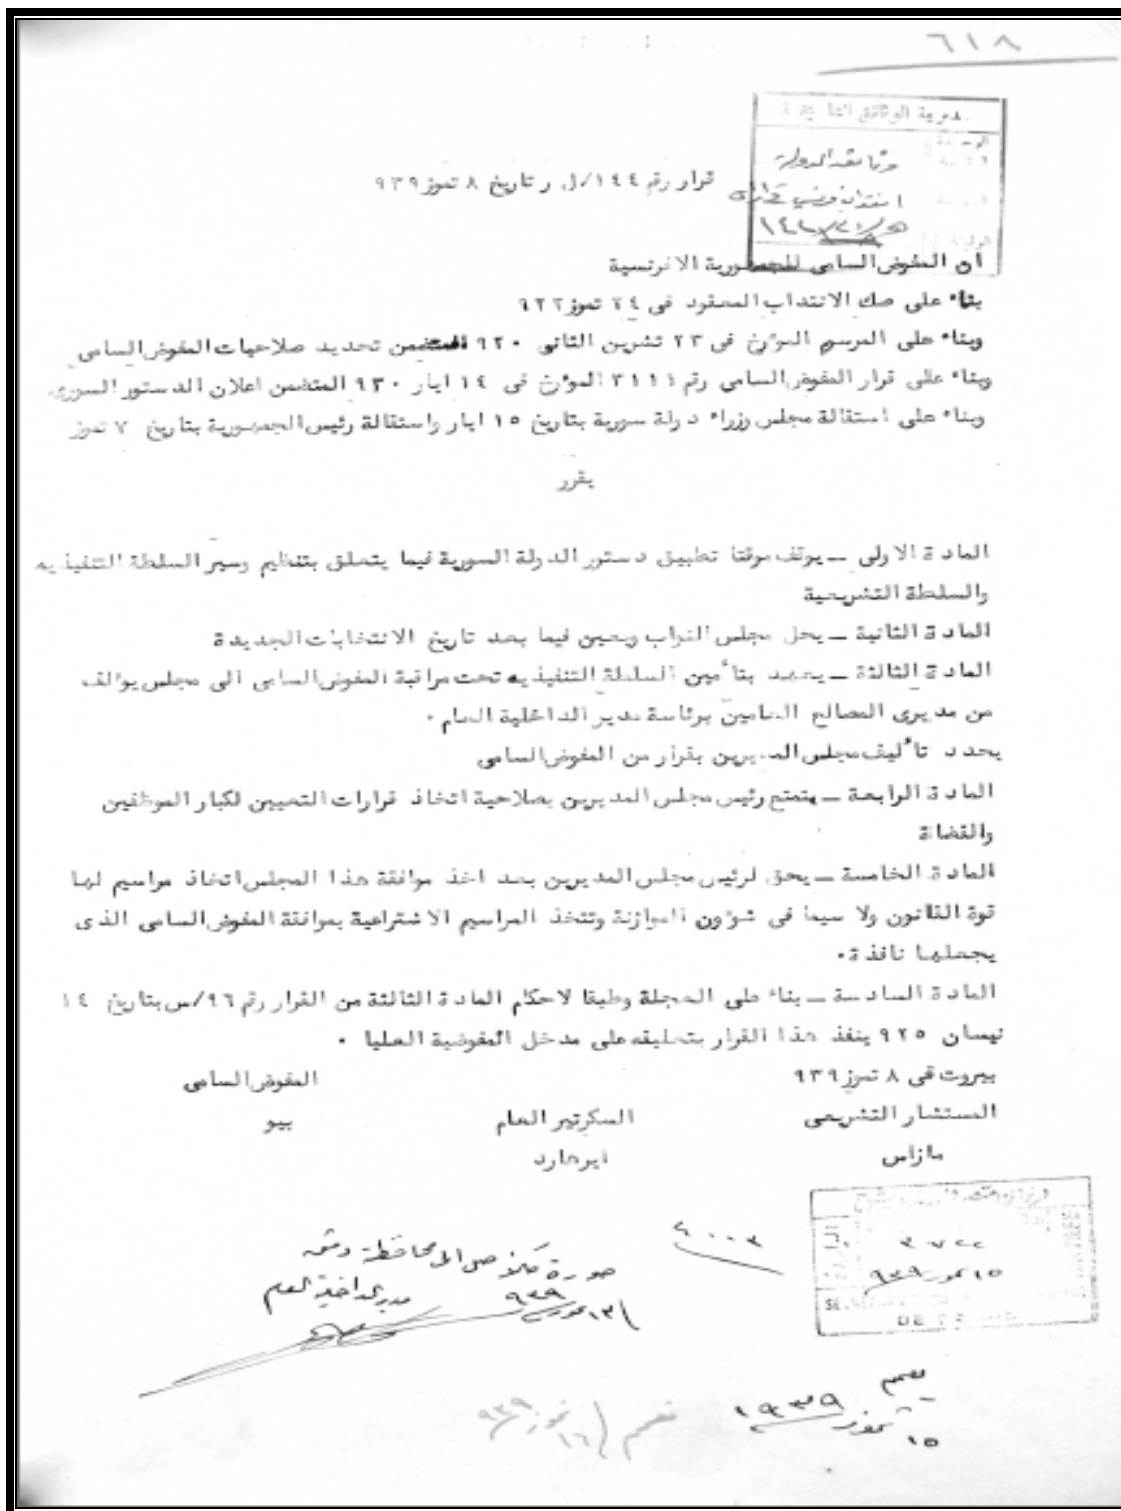 ٦١٨
مديرية الوثائق التاريخية
وثائق الدولة
قرار رقم ١٤٤/ل ر تاريخ ٨ تموز ٩٣٩
ان المفوض السامى للجمهورية الافرنسية
بناء على صك الانتداب المعقود فى ٢٤ تموز ٩٢٢
وبناء على المرسوم المؤرخ فى ٢٣ تشرين الثانى ٩٢٠ المتضمن تحديد صلاحيات المفوض السامى
وبناء على قرار المفوض السامى رقم ٣١١١ المؤرخ فى ١٤ ايار ٩٣٠ المتضمن اعلان الدستور السورى
وبناء على استقالة مجلس وزراء دولة سورية بتاريخ ١٥ ايار واستقالة رئيس الجمهورية بتاريخ ٧ تموز
يقرر
المادة الاولى ــ يوقف موقتا تطبيق دستور الدولة السورية فيما يتعلق بتنظيم وسير السلطة التنفيذيه
والسلطة التشريعية
المادة الثانية ــ يحل مجلس النواب ويعين فيما بعد تاريخ الانتخابات الجديدة
المادة الثالثة ــ يعهد بتأمين السلطة التنفيذيه تحت مراقبة المفوض السامى الى مجلس يوالف
من مديرى المصالح العامين برئاسة مدير الداخلية العام ٠
يحدد تأليف مجلس المديرين بقرار من المفوض السامى
المادة الرابعة ــ يتمتع رئيس مجلس المديرين بصلاحية اتخاذ قرارات التعيين لكبار الموظفين
والقضاة
المادة الخامسة ــ يحق لرئيس مجلس المديرين بعد اخذ موافقة هذا المجلس اتخاذ مراسيم لها
قوة القانون ولا سيما فى شؤون الموازنة وتتخذ المراسيم الاشتراعية بموافقة المفوض السامى الذى
يجعلها نافذة٠
المادة السادسة ــ بناء على العجلة وطبقا لاحكام المادة الثالثة من القرار رقم ٩٦/س بتاريخ ١٤
نيسان ٩٢٥ ينفذ هذا القرار بتعليقه على مدخل المفوضية العليا ٠
بيروت فى ٨ تموز ٩٣٩
المفوض السامى
المستشار التشريعى
السكرتير العام
بيو
مازاس
ايرهارد
٤٠٠٣
٣٧٢٢
١٥ تموز ٩٣٩
صورة طبق الاصل الى محافظة دمشق
١٣ تموز ٩٣٩
مدير الداخلية العام
DE
يعمم
١٥ تموز ١٩٣٩
١٦ تموز ٩٣٩